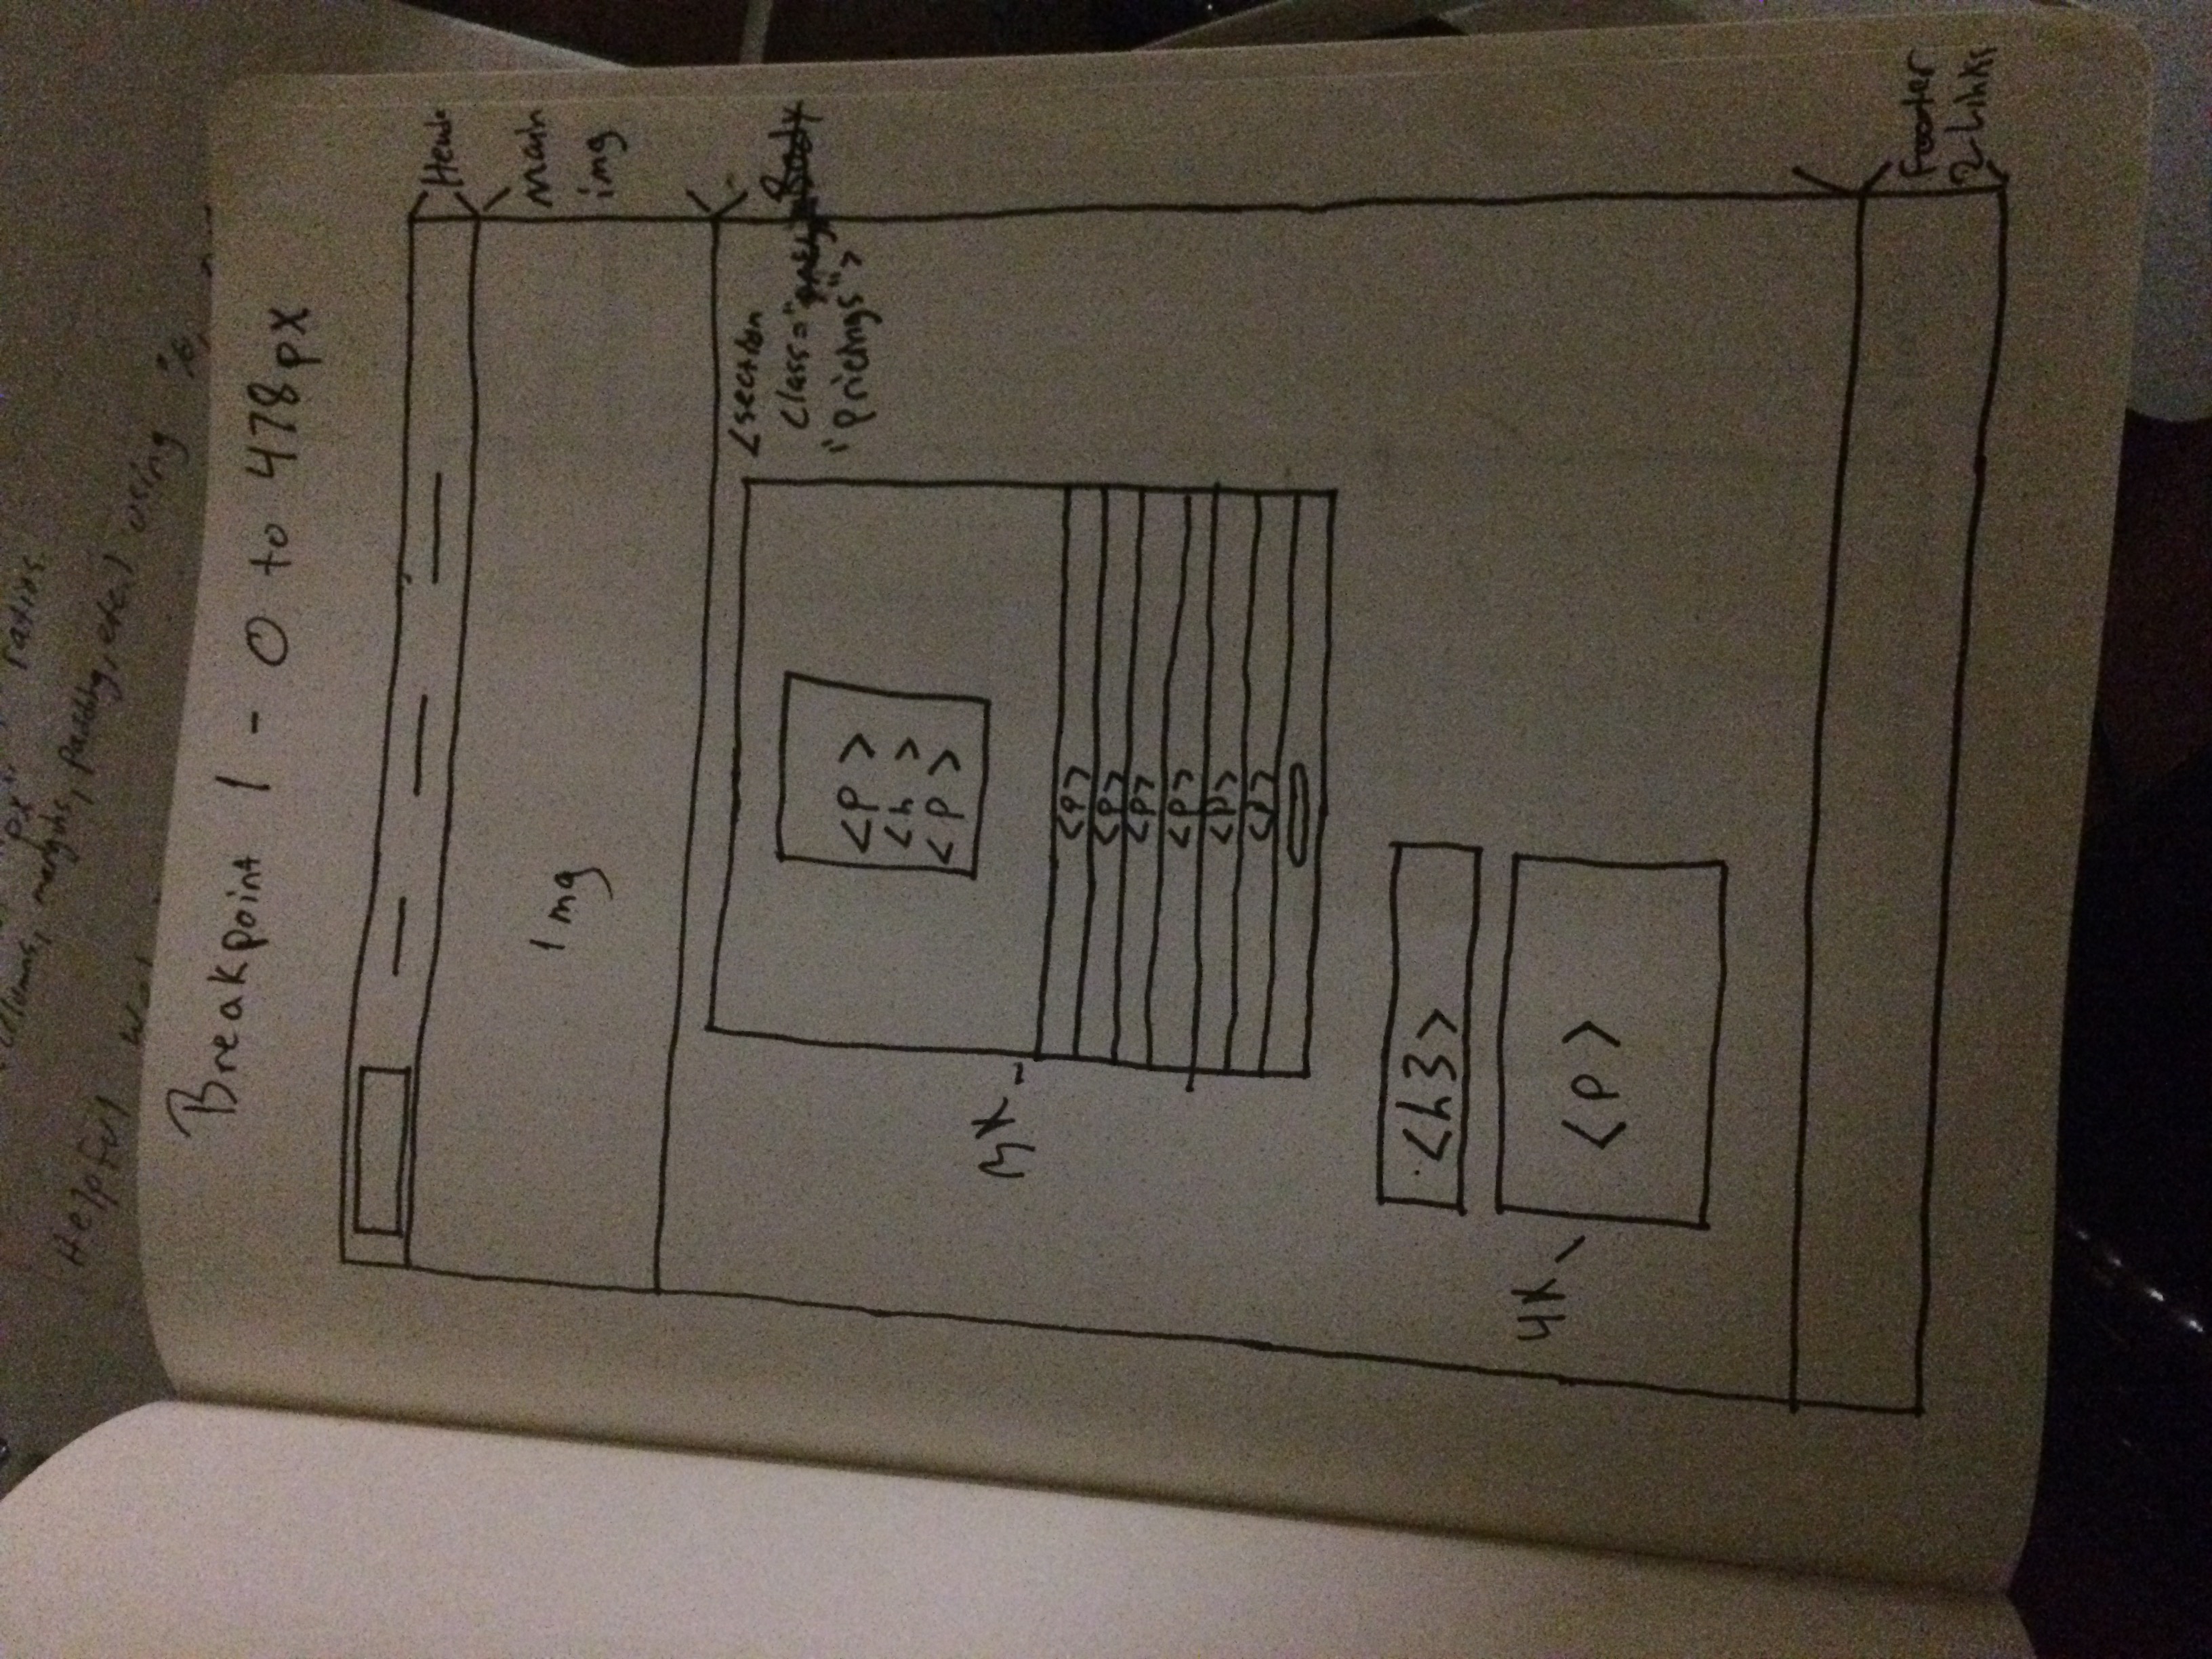 px" ratios.
columns, margins, padding, etc.) using %,
Helpful
Breakpoint 1 - 0 to 478px
Heade
Img
Main
img
<section
class="
Body
"pricings">
<p>
<h >
<p>
3X
<p>
<p>
<p>
<p>
<p>
<p>
<h3>
4X
<p>
Footer
2 Links